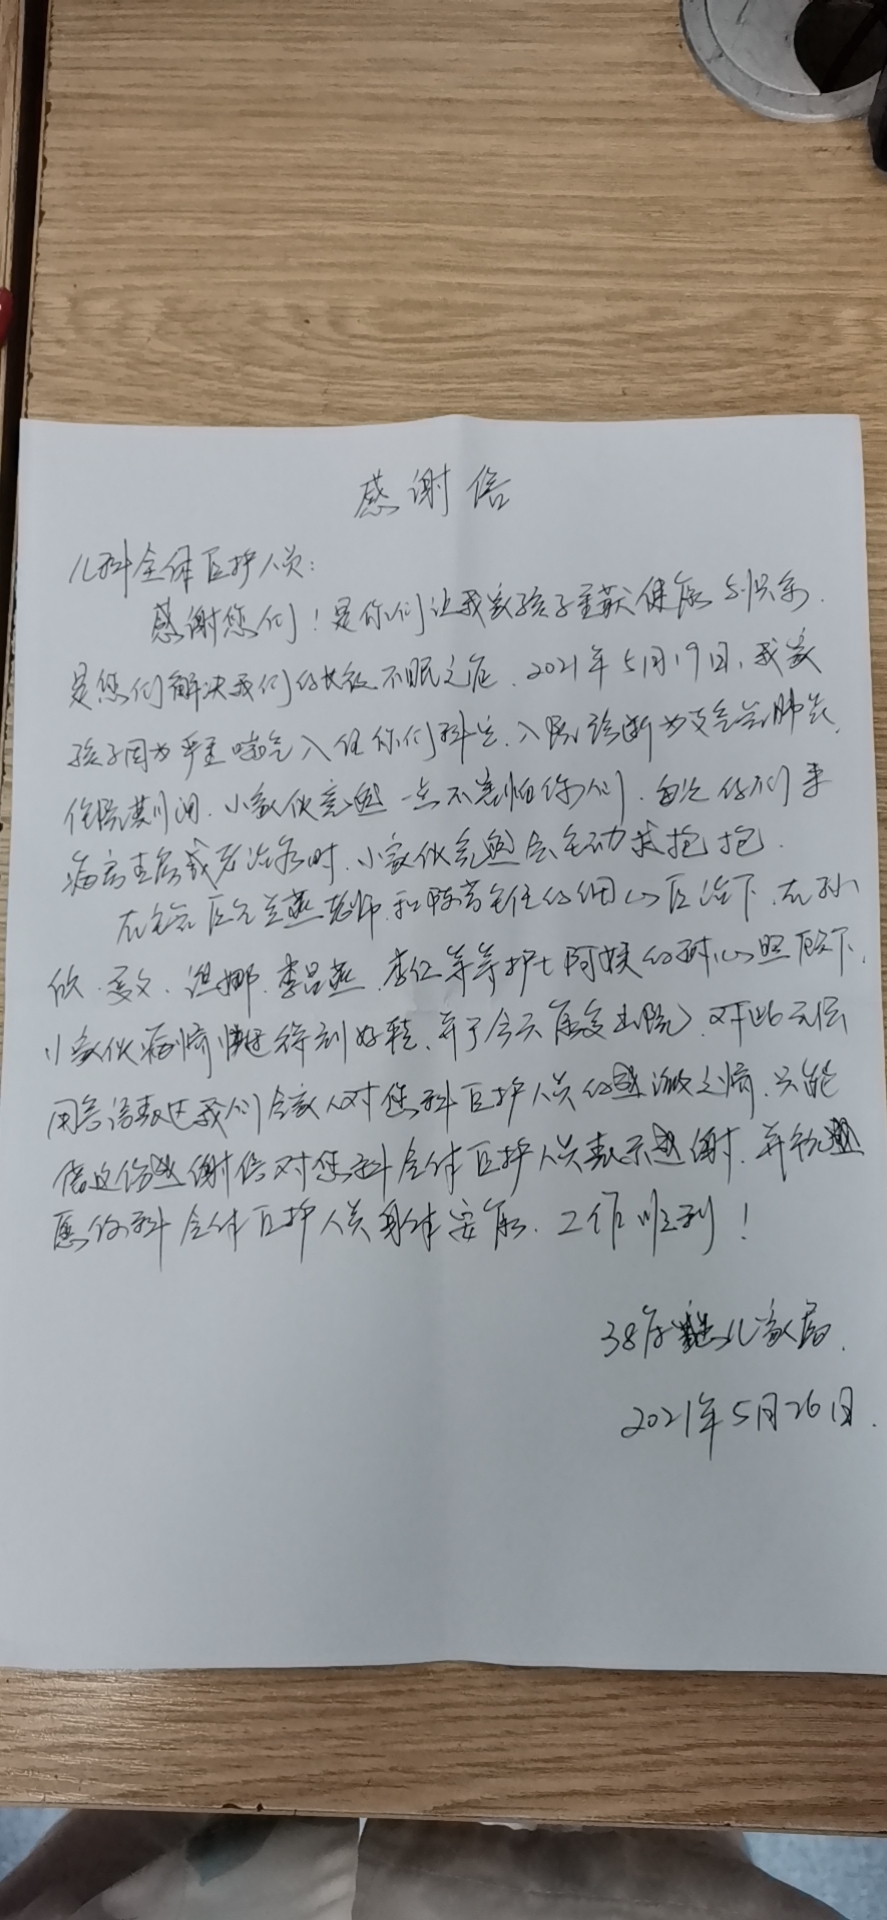 感谢信
儿科全体医护人员:
感谢您们!是你们让我家孩子重获健康与快乐.
是您们解决我们的长夜不眠之症.2021年5月19日,我家
孩子因为严重喘气入住你们科室.入院诊断为支气管肺炎.
住院期间.小家伙竟然一点不害怕你们.每次你们来
病房查房或者治疗时.小家伙竟然会主动求抱抱.
在医 老师和陈 主任的细心医治下.在孙
欣. .娜.李吕燕.李仁等等护士阿姨的耐心照顾下,
小家伙病情快速得到好转.并于今天康复出院.对此无法
用言语表达我们全家人对您科医护人员的感激之情.只能
借这份感谢信对您科全体医护人员表示感谢.并祝
愿你科全体医护人员身体安康.工作顺利!
38床患儿家属.
2021年5月26日.